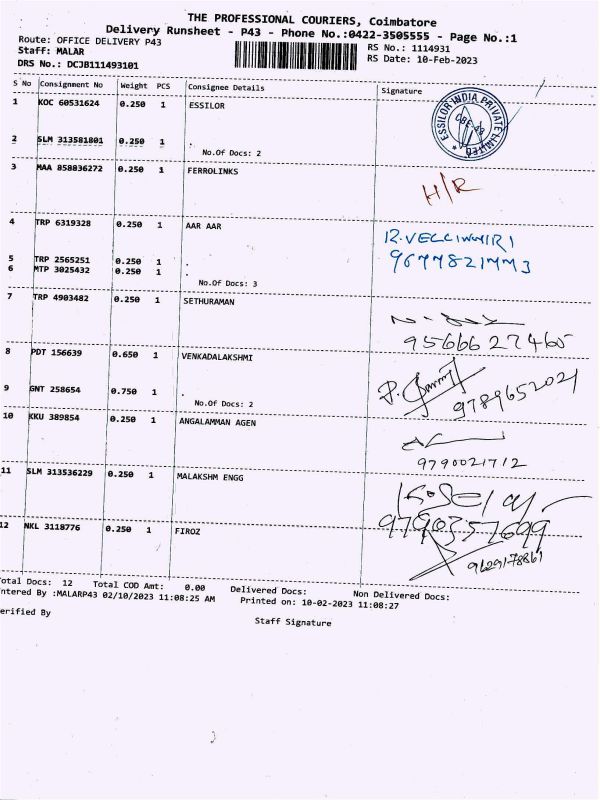 THE PROFESSIONAL COURIERS, Coimbatore
Delivery Runsheet - P43 - Phone No.:0422-3505555 - Page No.:1
Route: OFFICE DELIVERY P43
Staff: MALAR
DRS No.: DCJB111493101
RS No.: 1114931
RS Date: 10-Feb-2023
S No Consignment No Weight PCS Consignee Details Signature
1 KOC 60531624 0.250 1 ESSILOR
ESSILOR INDIA PRIVATE LIMITED
2 SLM 313581801 0.250 1 .
No.Of Docs: 2
3 MAA 858836272 0.250 1 FERROLINKS
H/R
4 TRP 6319328 0.250 1 AAR AAR
9677821773
5 TRP 2565251 0.250 1 .
6 MTP 3025432 0.250 1 .
No.Of Docs: 3
7 TRP 4903482 0.250 1 SETHURAMAN
9566627465
8 PDT 156639 0.650 1 VENKADALAKSHMI
9789652021
9 GNT 258654 0.750 1 .
No.Of Docs: 2
10 KKU 389854 0.250 1 ANGALAMMAN AGEN
9790021712
11 SLM 313536229 0.250 1 MALAKSHM ENGG
9790357699
12 NKL 3118776 0.250 1 FIROZ
9629178861
otal Docs: 12 Total COD Amt: 0.00 Delivered Docs: Non Delivered Docs:
ntered By :MALARP43 02/10/2023 11:08:25 AM Printed on: 10-02-2023 11:08:27
erified By
Staff Signature